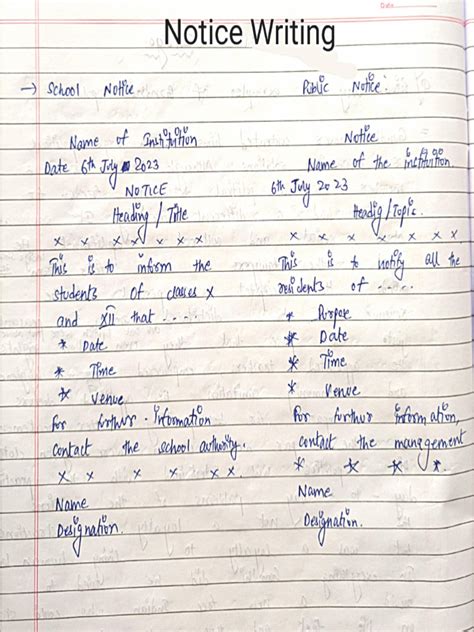 Date
Notice Writing
→ School Notice
Name of Institution
Date 6th July 2023
NOTICE
Heading / Title
x x x x x x x
This is to inform the
students of classes X
and XII that ....
* Date
* Time
* Venue
For furthur Information
contact the school authority.
x x x x x x
Name
Designation.
Public Notice:
Notice
Name of the institution
6th July 2023
Headig / Topic.
x x x x x x x
This is to notify all the
residents of ....
* Purpose
* Date
* Time
* Venue
For furthur information,
contact the management
* * * *.
Name
Designation.